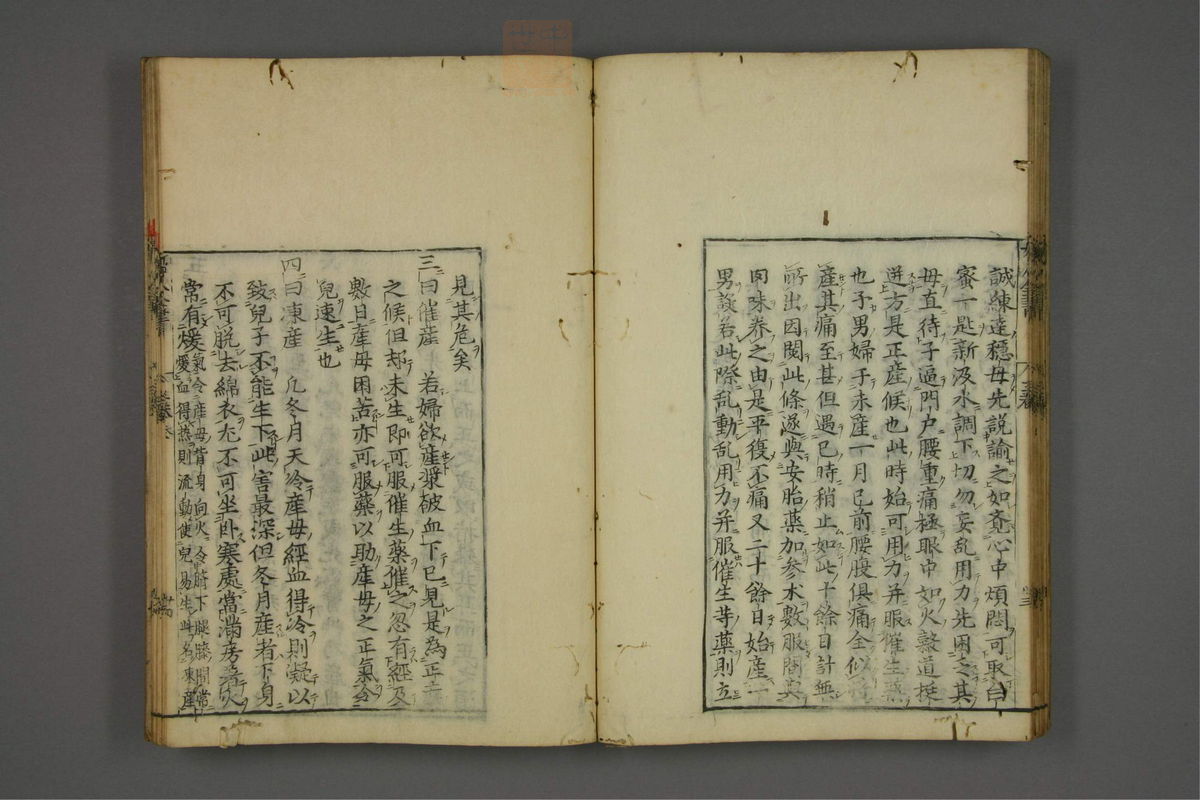 誠練達穩母先説諭之如覺心中煩悶可取白
蜜一匙新汲水調下切勿妄乱用力先困之其
母直待子逼門户腰重痛極眼中如火穀道挺
迸方是正産候也此時始可用力并服催生藥
也予男婦于未産一月已前腰腹俱痛全似將
産其痛至甚但遇巳時稍止如此十餘日計無
所出因閲此條遂與安胎藥加参术數服間其
同味券之由是平復不痛又二十餘日始産一
男設若此際乱動乱用力并服催生等藥則立
見其危矣
三曰催産 若婦欲産漿破血下已見是為正産
之候但却未生即可服催生藥催之忽有經及
數日産母困苦亦可服藥以助産母之正氣令
兒速生也
四曰凍産 凡冬月天冷産母經血得冷則凝以
致兒子不能生下此害最深但冬月産者下身
不可脱去綿衣尤不可坐卧寒處當滿房着火
常有煖氣令産母背身向火令臍下腿膝間常
煖血得熱則流動使兒易生此名凍産